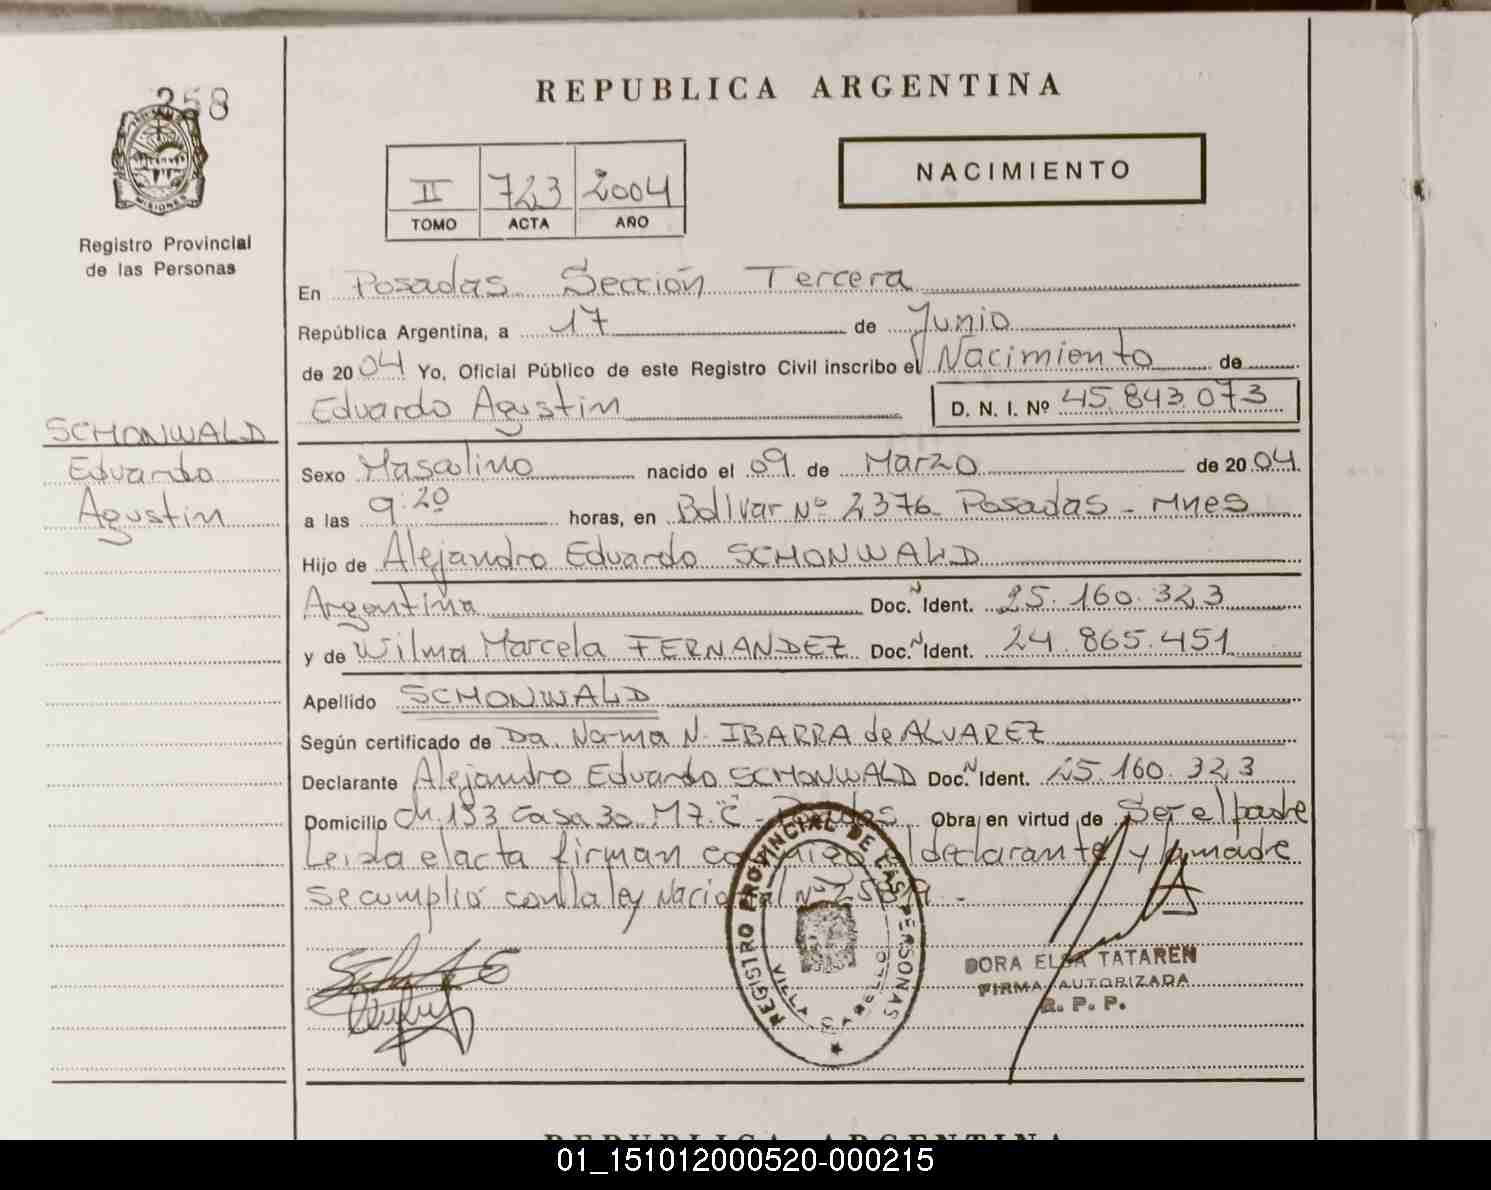 258
MISIONES
Registro Provincial
de las Personas
SCHONWALD
Eduardo
Agustin
REPUBLICA ARGENTINA
II 723 2004
TOMO ACTA AÑO
NACIMIENTO
En Posadas Sección Tercera
República Argentina, a 17 de Junio
de 2004 Yo, Oficial Público de este Registro Civil inscribo el Nacimiento de
Eduardo Agustin D. N. I. Nº 45.843.073
Sexo Masculino nacido el 09 de Marzo de 2004
a las 9.20 horas, en Bolivar Nº 2376 Posadas - Mnes
Hijo de Alejandro Eduardo SCHONWALD
Argentina Doc. N Ident. 25.160.323
y de Wilma Marcela FERNANDEZ Doc. N Ident. 24.865.451
Apellido SCHONWALD
Según certificado de Da. Norma N. IBARRA de ALVAREZ
Declarante Alejandro Eduardo SCHONWALD Doc. N Ident. 25.160.323
Domicilio Ch. 153 Casa 30 M7."C" - Posadas Obra en virtud de Ser el padre
Leida el acta firman conmigo el declarante y la madre
se cumplió con la ley Nacional Nº
REGISTRO PROVINCIAL DE LAS PERSONAS
VILLA CABELLO
DORA ELSA TATAREN
FIRMA AUTORIZADA
R. P. P.
REPUBLICA ARGENTINA
01_151012000520-000215